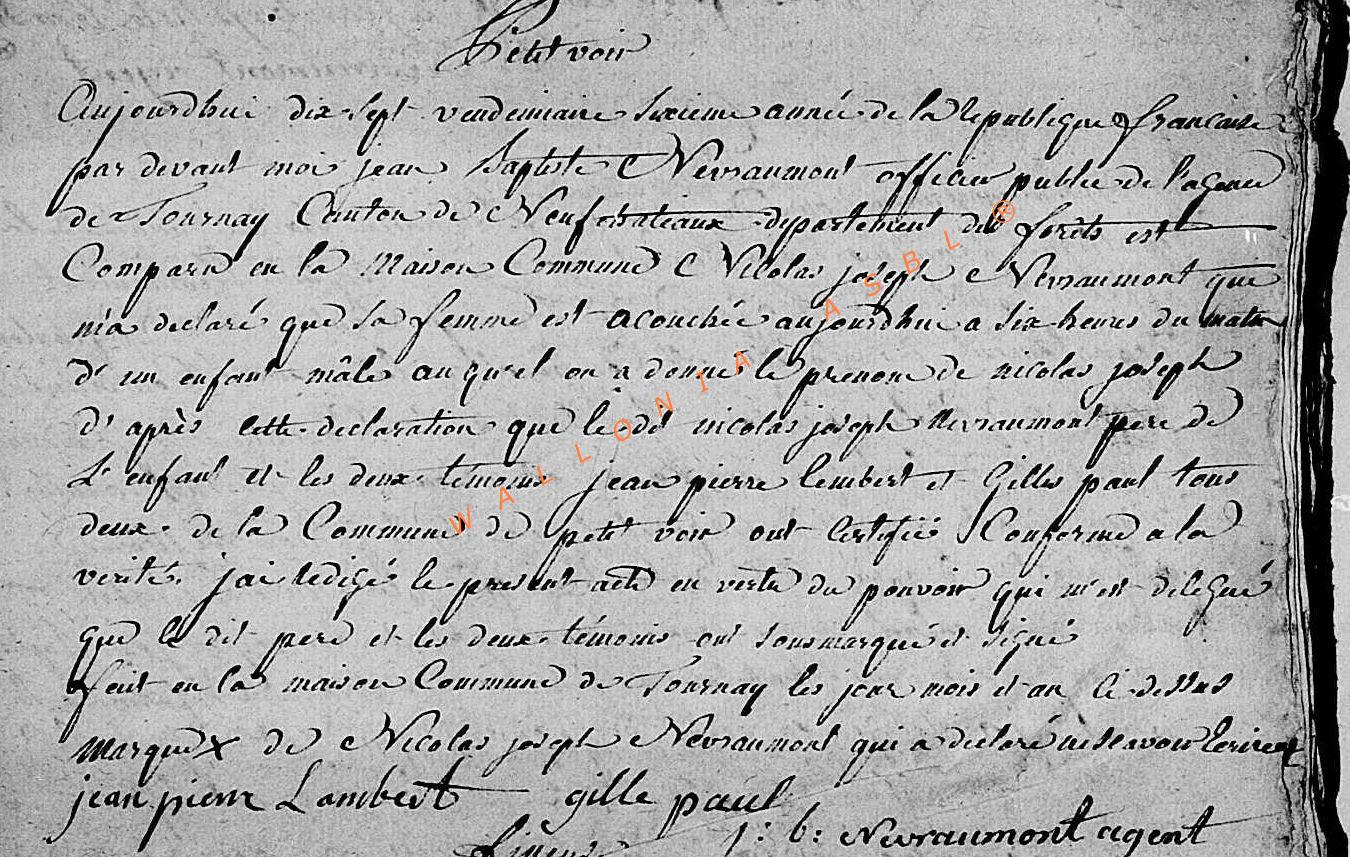 Petit voir
Aujourdhui dix sept vendemiaire sixieme année de la Republique francaise
par devant moi jean Baptiste Nevraumont officier public de l'agence
de Tournay Canton de Neufchateaux departement des forêts est
Comparu en la Maison Commune Nicolas joseph Nevraumont qui
m'a declaré que sa femme est acouchée aujourdhui a six heures du matin
d' un enfant mâle au quel on a donné le prenom de nicolas joseph
d' après cette declaration que le dit nicolas joseph Nevraumont pere de
L'enfant et les deux témoins jean pierre lembert et Gilles paul tous
deux de la Commune de petit voir ont Certifié Conforme a la
verité. j'ai redigé le present acte en vertu du pouvoir qui m'est delegué
que le dit pere et les deux témoins ont sousmarqué et signé
fait en la maison Commune de Tournay les jour mois et an Ci dessus
marque X de Nicolas joseph Nevraumont qui a declaré ne savoir Ecrire
jean pierre Lambert gille paul
j: b: Nevraumont agent
WALLONIA ASBL ®